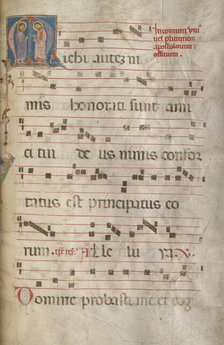 Michi autem ni
In comuni uni
uel plurimor
apostolorum
officium.
mis honorati sunt ami
ci tui de us nimis confor
tatus est principatus eo
rum. Al le lu ya.
Domine probasti me et cog